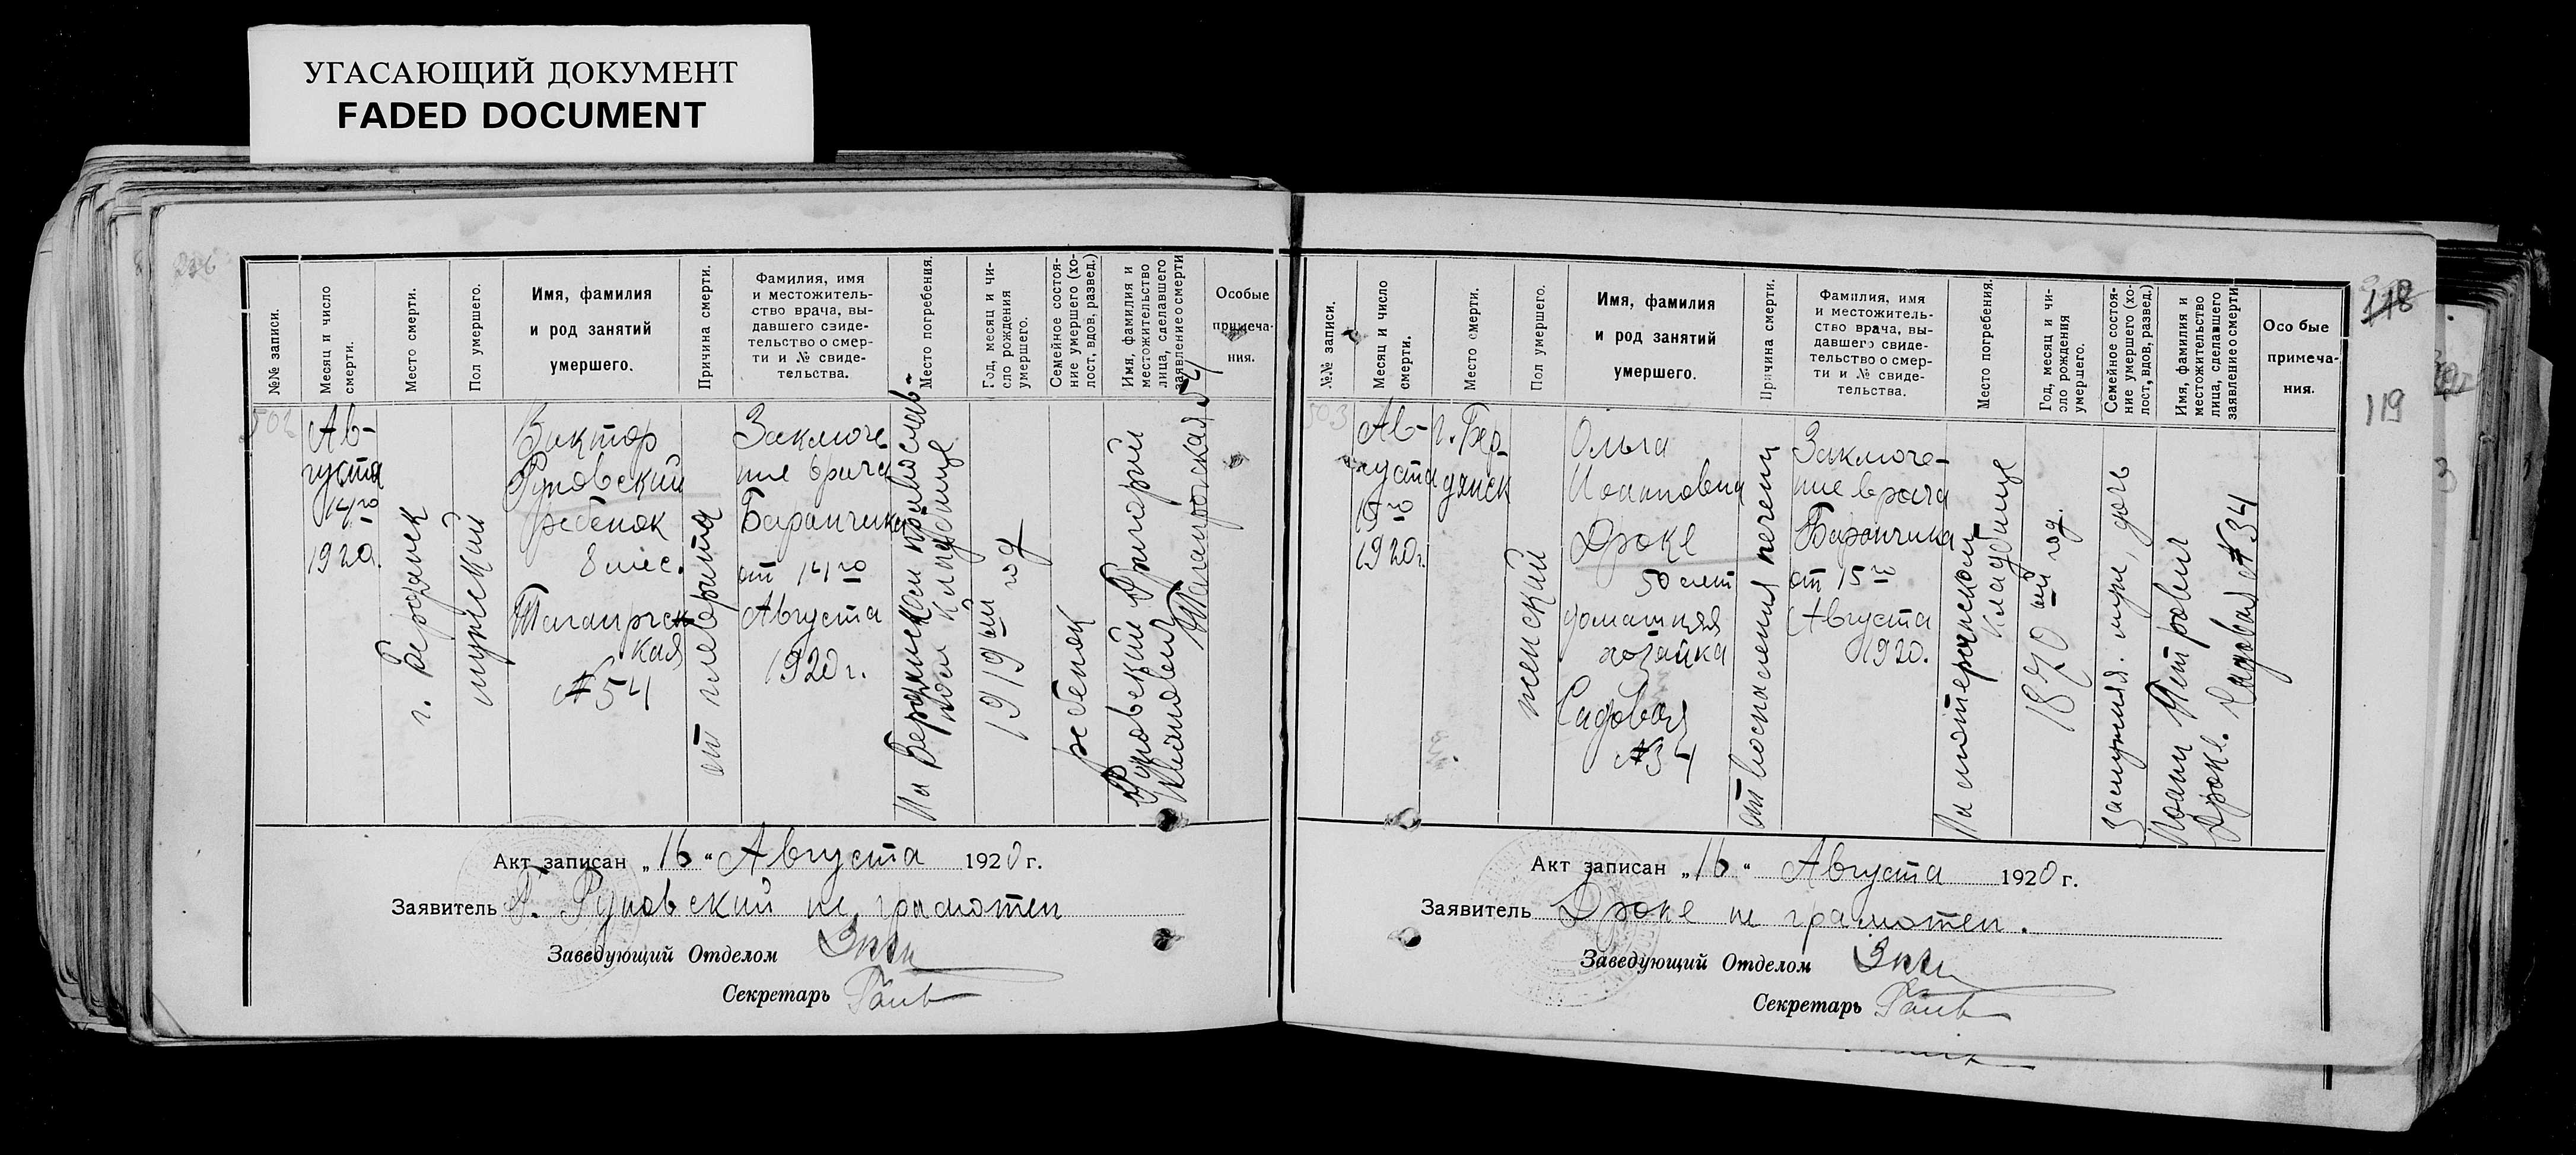 УГАСАЮЩИЙ ДОКУМЕНТ
FADED DOCUMENT
№№ записи.
Месяц и число
смерти.
Место смерти.
Пол умершего.
Имя, фамилия
и род занятий
умершего.
Причина смерти.
Фамилия, имя
и местожитель-
ство врача, вы-
давшего свиде-
тельство о смер-
ти и № свиде-
тельства.
Место погребения.
Год, месяц и чи-
сло рождения
умершего.
Семейное состоя-
ние умершего (хо-
лост, вдов, развед.)
Имя, фамилия и
местожительство
лица, сделавшего
заявление о смерти
Особые
примеча-
ния.
502
Ав-
густа
14го
1920.
г. Бердянск
мужской
Виктор
Руновский
ребенок
8 мес.
Таганргск
кая
№ 54
от
Заключе
ние врача
Баранчика
от 14го
Августа
1920 г.
На Бердянском православ-
ном кладбище
1919ый год
ребенок
Руновский Григорий
Иванович
Таганрогская 54
Акт записан „16“ Августа 1920 г.
Заявитель Г. Руновский не грамотен
Заведующий Отделом
Секретарь
118
119
№№ записи.
Месяц и число
смерти.
Место смерти.
Пол умершего.
Имя, фамилия
и род занятий
умершего.
Причина смерти.
Фамилия, имя
и местожитель-
ство врача, вы-
давшего свиде-
тельство о смер-
ти и № свиде-
тельства.
Место погребения.
Год, месяц и чи-
сло рождения
умершего.
Семейное состоя-
ние умершего (хо-
лост, вдов, развед.)
Имя, фамилия и
местожительство
лица, сделавшего
заявление о смерти
Осо бые
примеча-
ния.
503
Ав-
густа
15го
1920г.
г. Бер-
дянск
женский
Ольга
Иоанновна
Дроке
50 лет
домашняя
хозайка
Садовая
№ 34
от воспаления печени
Заключе-
ние врача
Баранчика
от 15го
Августа
1920.
На лютеранском
кладбище
1870ый год.
замужняя. муж, дочь
Иоанн Петрович
Дроке. Садовая № 34
Акт записан „16“ Августа 1920 г.
Заявитель Дроке не грамотен.
Заведующий Отделом
Секретарь